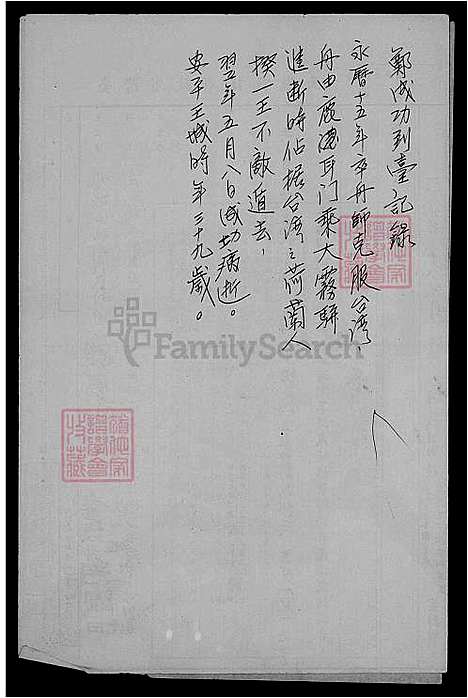 鄭成功到臺記錄
永曆十五年率舟師克服台灣，
舟由鹿港耳门乘大霧駢
進断時佔据台湾之荷蘭人
揆一王不敵遁去，
翌年五月八日成功病逝。
安平王城時年三十九歲。
FamilySearch